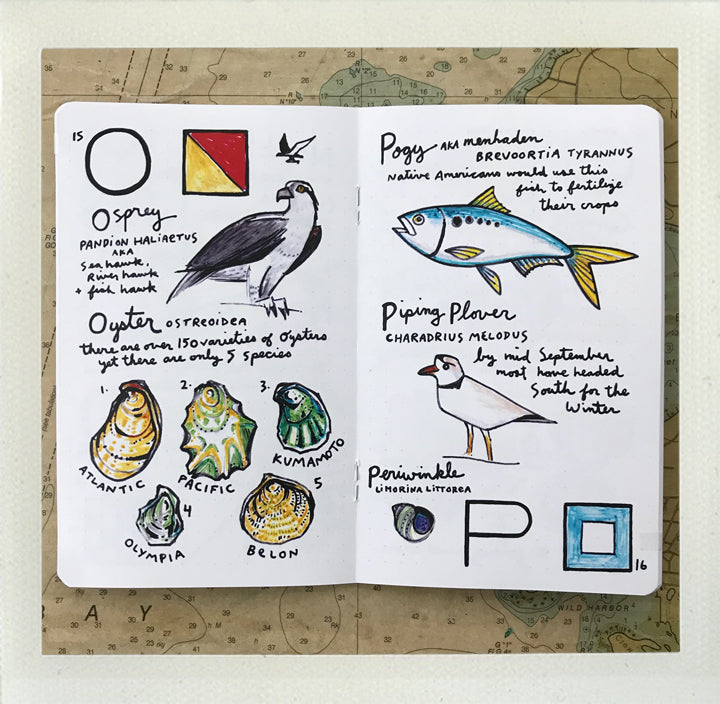 15
O
Osprey
PANDION HALIAETUS
AKA
Sea hawk,
River hawk
+ fish hawk
Oyster OSTREOIDEA
there are over 150 varieties of Oysters
yet there are only 5 species
1.
2.
3.
ATLANTIC
PACIFIC
KUMAMOTO
4
5
OLYMPIA
BELON
Pogy AKA menhaden
BREVOORTIA TYRANNUS
Native Americans would use this
fish to fertilize
their crops
Piping Plover
CHARADRIUS MELODUS
by mid September
most have headed
South for the
Winter
Periwinkle
LIMORINA LITTOREA
P
16
B A Y
WILD HARBOR